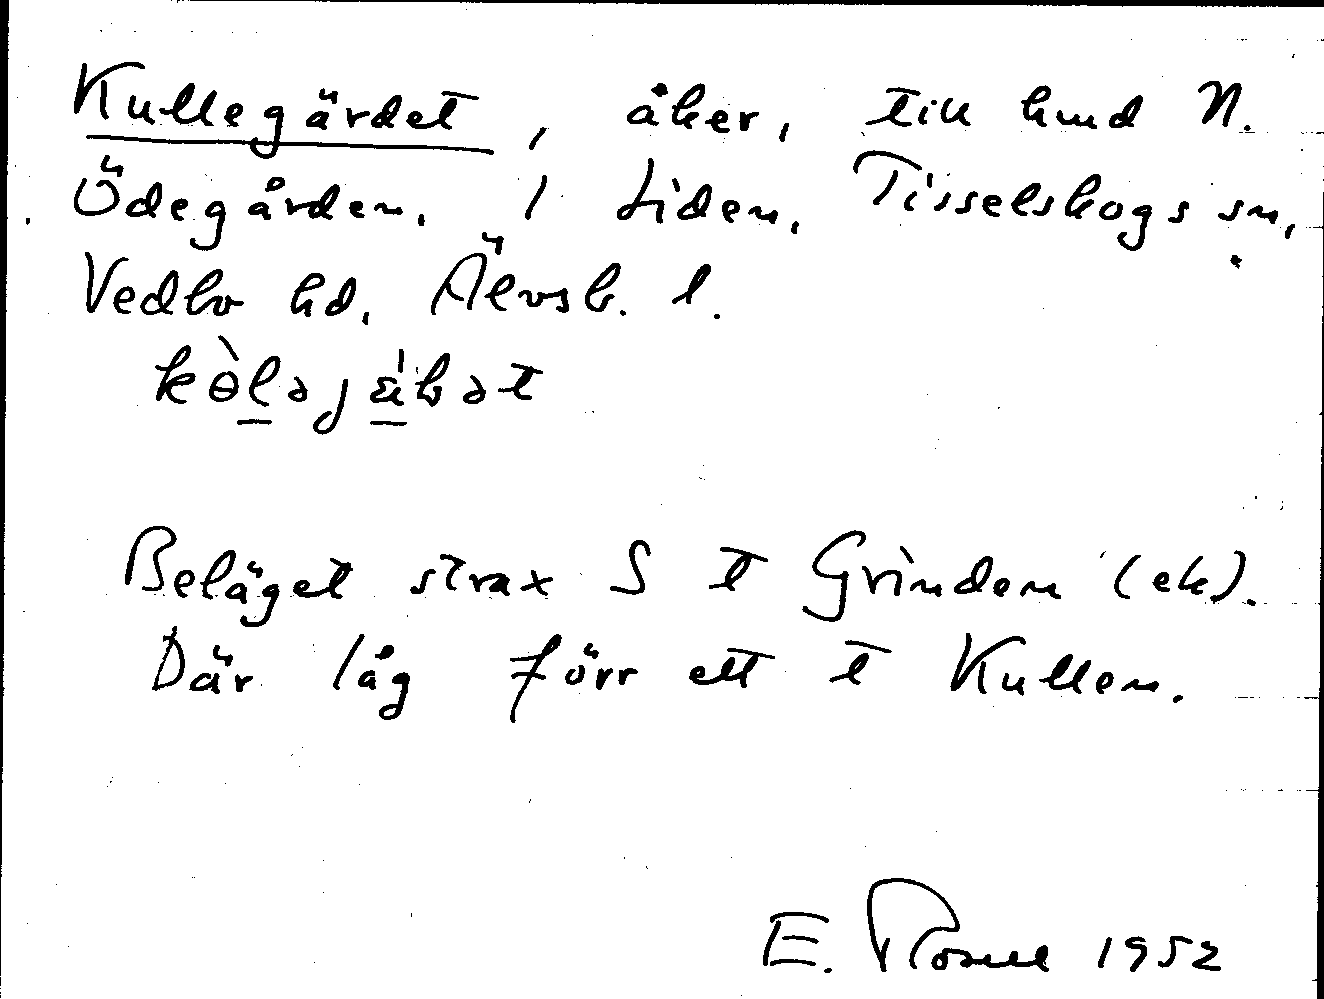 Kullegärdet, åker, till hmd N.
Ödegården, 1 Liden, Tisselskogs sn,
Vedbo hd, Älvsb. l.
Beläget strax S t Grinden (ek).
Där låg förr ett t Kullen.
E. 1952